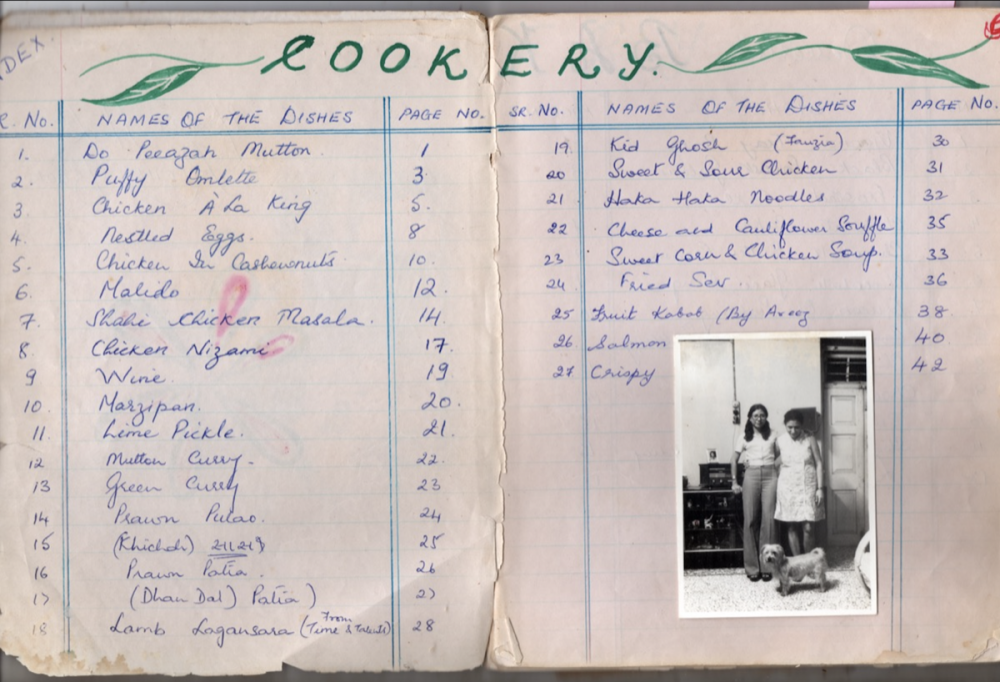 INDEX.
COOKERY.
NAMES OF THE DISHES PAGE NO.
1. Do Peeazah Mutton 1
2. Puffy Omlette 3
3. Chicken À La King 5.
4. Nestled Eggs. 8
5. Chicken In Cashewnuts 10.
6. Malido 12.
7. Shahi Chicken Masala. 14.
8. Chicken Nizami 17.
9 Wine. 19
10. Marzipan. 20.
11. Lime Pickle. 21.
12 Mutton Curry. 22.
13 Green Curry 23
14 Prawn Pulao. 24
15 (Khichdi) 25
16 Prawn Patia. 26
17 (Dhan Dal) Patia) 27
18 Lamb Lagansara (From Time & Talents) 28
SR. NO. NAMES OF THE DISHES PAGE NO.
19. Kid Ghosh (Fauzia) 30
20 Sweet & Sour Chicken 31
21 Haka Haka Noodles 32
22 Cheese and Cauliflower Souffle 35
23 Sweet Corn & Chicken Soup. 33
24 Fried Sev. 36
25 Fruit Kabab (By Areez 38
26 Salmon 40
27 Crispy 42